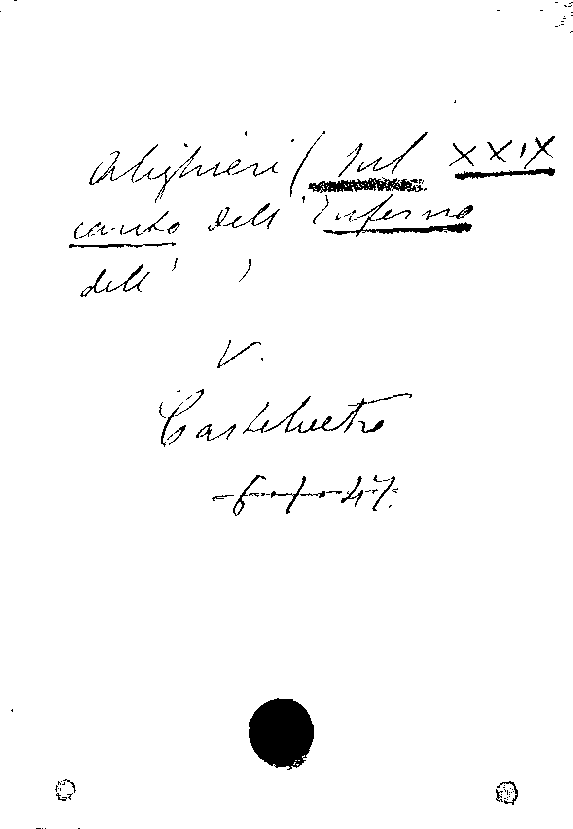 Alighieri (Sul XXIX
canto dell'Inferno
dell' )
V.
Castelvetro